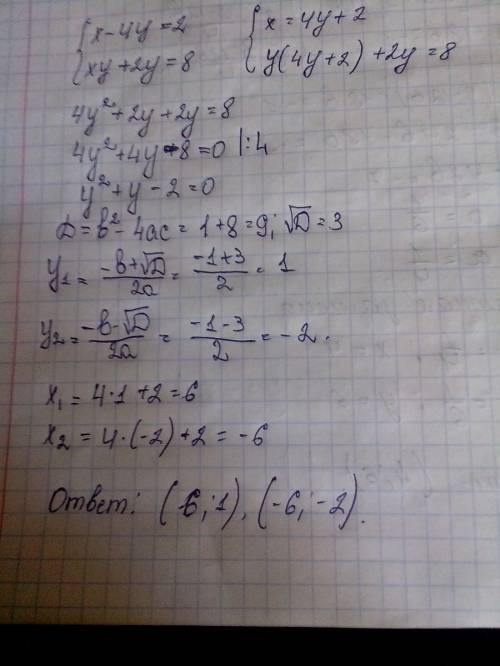 { x - 4y = 2
{ xy + 2y = 8
{ x = 4y + 2
{ y(4y + 2) + 2y = 8
4y² + 2y + 2y = 8
4y² + 4y - 8 = 0 |:4
y² + y - 2 = 0
D = b² - 4ac = 1 + 8 = 9; √D = 3
y₁ = (-b + √D)/2a = (-1 + 3)/2 = 1
y₂ = (-b - √D)/2a = (-1 - 3)/2 = -2.
x₁ = 4·1 + 2 = 6
x₂ = 4·(-2) + 2 = -6
Ответ: (6; 1), (-6; -2).